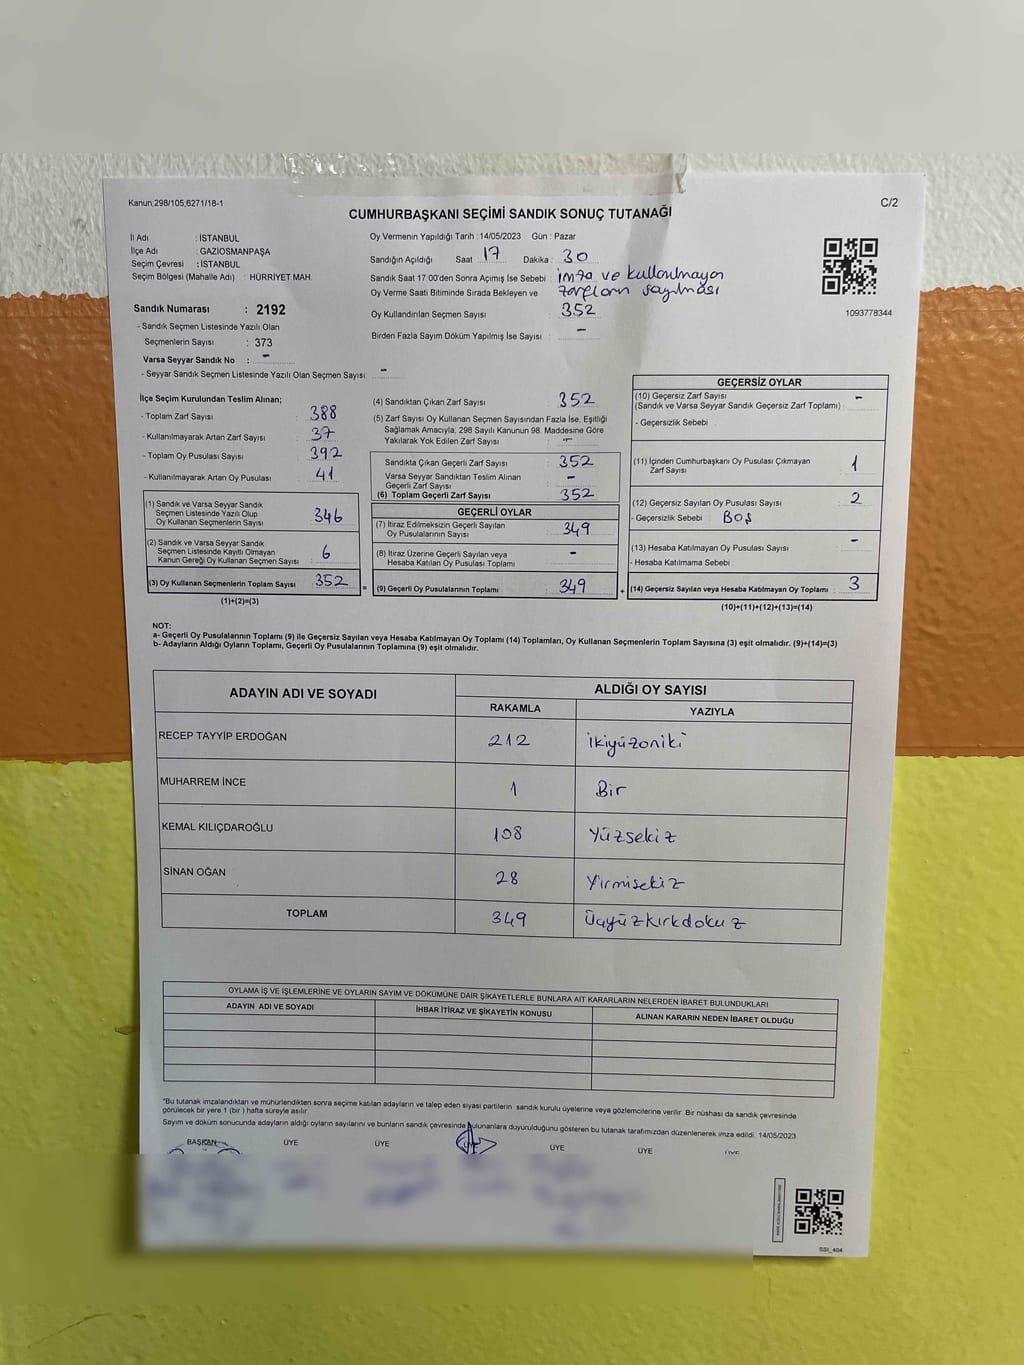 Kanun;298/105,6271/18-1
C/2
CUMHURBAŞKANI SEÇİMİ SANDIK SONUÇ TUTANAĞI
İl Adı : İSTANBUL
İlçe Adı : GAZİOSMANPAŞA
Seçim Çevresi : İSTANBUL
Seçim Bölgesi (Mahalle Adı) : HÜRRİYET MAH.
Sandık Numarası : 2192
- Sandık Seçmen Listesinde Yazılı Olan
Seçmenlerin Sayısı : 373
Varsa Seyyar Sandık No : -
- Seyyar Sandık Seçmen Listesinde Yazılı Olan Seçmen Sayısı: -
Oy Vermenin Yapıldığı Tarih :14/05/2023 Gün : Pazar
Sandığın Açıldığı Saat 17 Dakika : 30
Sandık Saat 17:00'den Sonra Açımış İse Sebebi : imza ve kullanılmayan
Oy Verme Saati Bitiminde Sırada Bekleyen ve zarfların sayılması
Oy Kullandırılan Seçmen Sayısı : 352
Birden Fazla Sayım Döküm Yapılmış İse Sayısı : -
1093778344
İlçe Seçim Kurulundan Teslim Alınan;
- Toplam Zarf Sayısı : 388
- Kullanılmayarak Artan Zarf Sayısı : 37
- Toplam Oy Pusulası Sayısı : 392
- Kullanılmayarak Artan Oy Pusulası : 41
(1) Sandık ve Varsa Seyyar Sandık
Seçmen Listesinde Yazılı Olup
Oy Kullanan Seçmenlerin Sayısı : 346
(2) Sandık ve Varsa Seyyar Sandık
Seçmen Listesinde Kayıtlı Olmayan
Kanun Gereği Oy Kullanan Seçmen Sayısı : 6
(3) Oy Kullanan Seçmenlerin Toplam Sayısı : 352
(1)+(2)=(3)
(4) Sandıktan Çıkan Zarf Sayısı : 352
(5) Zarf Sayısı Oy Kullanan Seçmen Sayısından Fazla İse, Eşitliği
Sağlamak Amacıyla, 298 Sayılı Kanunun 98. Maddesine Göre
Yakılarak Yok Edilen Zarf Sayısı : -
Sandıkta Çıkan Geçerli Zarf Sayısı : 352
Varsa Seyyar Sandıktan Teslim Alınan
Geçerli Zarf Sayısı : -
(6) Toplam Geçerli Zarf Sayısı : 352
GEÇERLİ OYLAR
(7) İtiraz Edilmeksizin Geçerli Sayılan
Oy Pusulalarının Sayısı : 349
(8) İtiraz Üzerine Geçerli Sayılan veya
Hesaba Katılan Oy Pusulası Toplamı : -
= (9) Geçerli Oy Pusulalarının Toplamı : 349 +
GEÇERSİZ OYLAR
(10) Geçersiz Zarf Sayısı
(Sandık ve Varsa Seyyar Sandık Geçersiz Zarf Toplamı) : -
- Geçersizlik Sebebi :
(11) İçinden Cumhurbaşkanı Oy Pusulası Çıkmayan
Zarf Sayısı : 1
(12) Geçersiz Sayılan Oy Pusulası Sayısı : 2
- Geçersizlik Sebebi : Boş
(13) Hesaba Katılmayan Oy Pusulası Sayısı : -
- Hesaba Katılmama Sebebi :
(14) Geçersiz Sayılan veya Hesaba Katılmayan Oy Toplamı : 3
(10)+(11)+(12)+(13)=(14)
NOT:
a- Geçerli Oy Pusulalarının Toplamı (9) ile Geçersiz Sayılan veya Hesaba Katılmayan Oy Toplamı (14) Toplamları, Oy Kullanan Seçmenlerin Toplam Sayısına (3) eşit olmalıdır. (9)+(14)=(3)
b- Adayların Aldığı Oyların Toplamı, Geçerli Oy Pusulalarının Toplamına (9) eşit olmalıdır.
ADAYIN ADI VE SOYADI
ALDIĞI OY SAYISI
RAKAMLA YAZIYLA
RECEP TAYYİP ERDOĞAN 212 ikiyüzoniki
MUHARREM İNCE 1 Bir
KEMAL KILIÇDAROĞLU 108 Yüzsekiz
SİNAN OĞAN 28 Yirmisekiz
TOPLAM 349 Üçyüzkırkdokuz
OYLAMA İŞ VE İŞLEMLERİNE VE OYLARIN SAYIM VE DÖKÜMÜNE DAİR ŞİKAYETLERLE BUNLARA AİT KARARLARIN NELERDEN İBARET BULUNDUKLARI
ADAYIN ADI VE SOYADI İHBAR İTİRAZ VE ŞİKAYETİN KONUSU ALINAN KARARIN NEDEN İBARET OLDUĞU
*Bu tutanak imzalandıktan ve mühürlendikten sonra seçime katılan adayların ve talep eden siyasi partilerin sandık kurulu üyelerine veya gözlemcilerine verilir. Bir nüshası da sandık çevresinde
görülecek bir yere 1 (bir ) hafta süreyle asılır.
Sayım ve döküm sonucunda adayların aldığı oyların sayılarını ve bunların sandık çevresinde bulunanlara duyurulduğunu gösteren bu tutanak tarafımızdan düzenlenerek imza edildi. 14/05/2023
BAŞKAN ÜYE ÜYE ÜYE ÜYE ÜYE ÜYE
SSİ_404